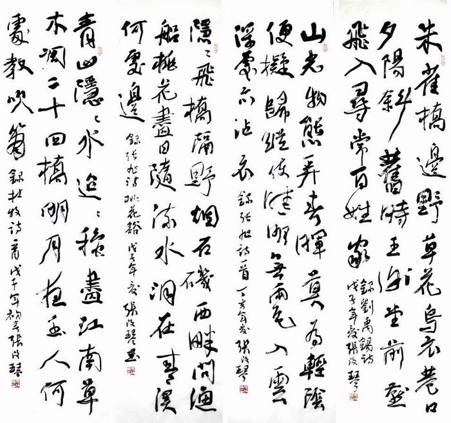 朱雀橋邊野草花烏衣巷口
夕陽斜舊時王謝堂前燕
飛入尋常百姓家
錄劉禹錫詩
戊子年夏張改琴
山光物態弄春暉莫為輕陰
便擬歸縱使晴明無雨色入雲
深處亦沾衣 錄張旭詩一首 丁亥年夏張改琴
隱〻飛橋隔野煙石磯西畔問漁
船桃花盡日隨流水洞在青溪
何處邊 錄張旭詩桃花谿 戊子年夏張改琴
青山隱〻水迢〻秋盡江南草
木凋二十四橋明月夜玉人何
處教吹簫 錄杜牧詩一首戊子年 張改琴